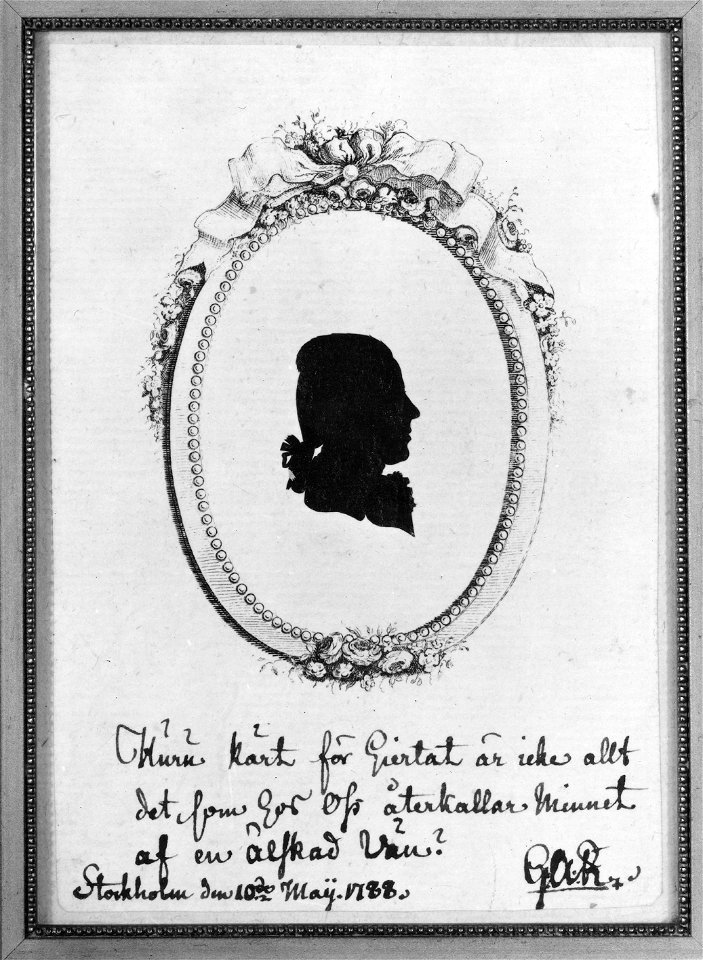 Huru kärt för Giertat är icke allt
det, som hos Oß återkallar Minnet
af en Älskad Vän?
Stockholm den 10de Maÿ. 1788.
GAR